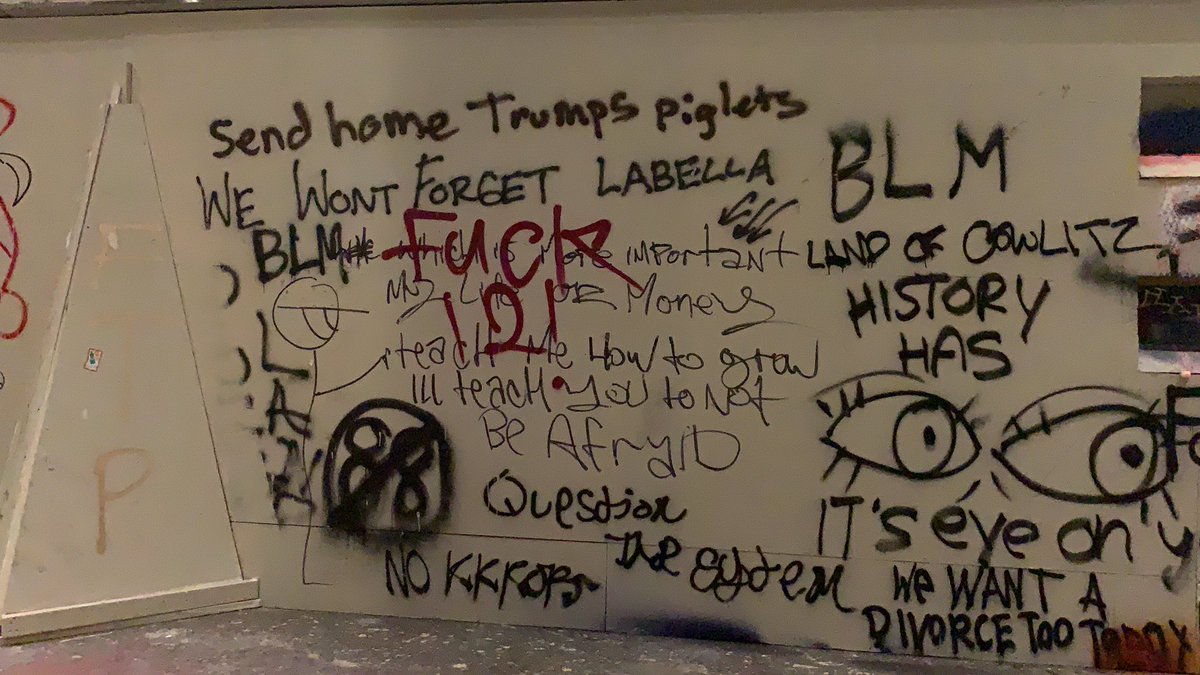 Send home Trumps piglets
WE WONT FORGET LABELLA
BLM
FUCK
12!
which is More important
My Life OR Money
teach me How to grow
Ill teach you to Not
Be AfryiD
88
Question
the system
NO KKKOPS
P
BLM
LAND OF COWLITZ
HISTORY
HAS
IT's eye on
We WANT A
DIVORCE TOO TODDY